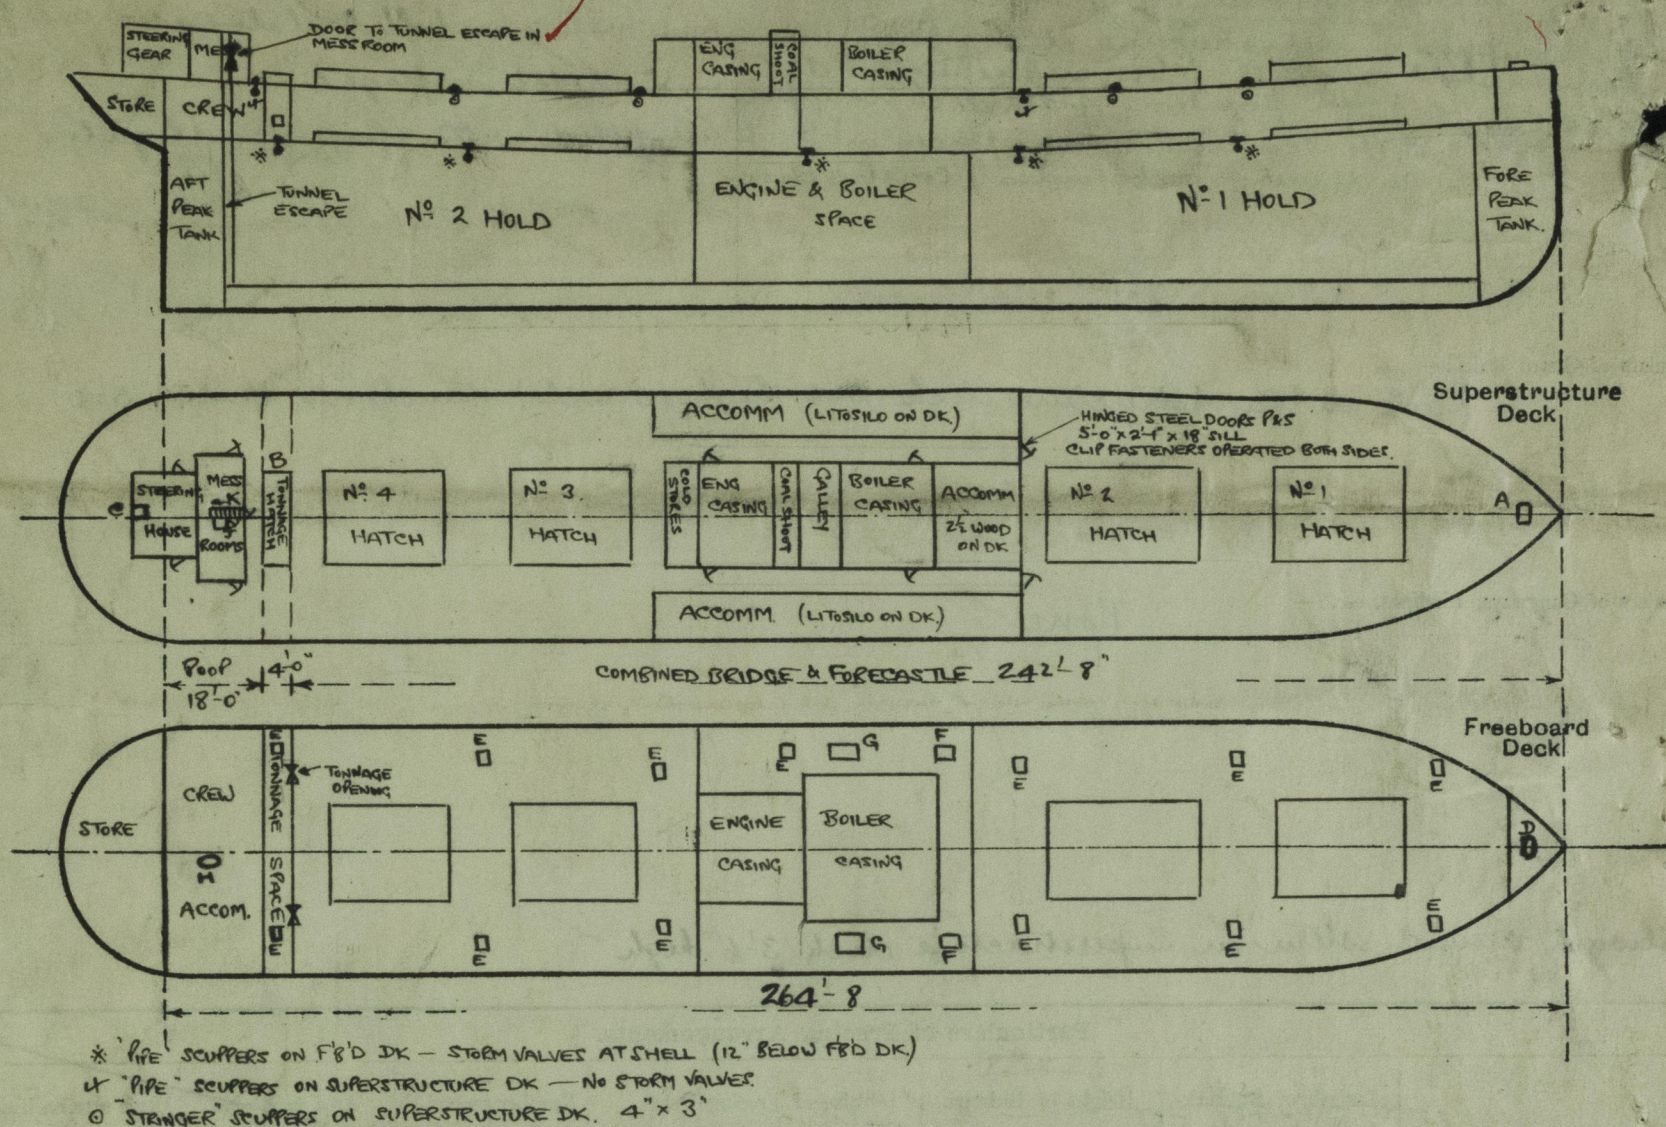 STEERING
GEAR
MESS
DOOR TO TUNNEL ESCAPE IN
MESS ROOM
ENG
CASING
COAL
SHOOT
BOILER
CASING
STORE
CREW
AFT
PEAK
TANK
TUNNEL
ESCAPE
No 2 HOLD
ENGINE & BOILER
SPACE
No 1 HOLD
FORE
PEAK
TANK.
Superstructure
Deck
ACCOMM (LITOSILO ON DK.)
HINGED STEEL DOORS P&S
5'-0" x 2'-4" x 18" SILL
CLIP FASTENERS OPERATED BOTH SIDES.
STEERING
HOUSE
MESS
ROOMS
B
TONNAGE
HATCH
No 4
HATCH
No 3.
HATCH
COLD
STORES
ENG
CASING
COAL SHOOT
GALLEY
BOILER
CASING
ACCOMM
2½" WOOD
ON DK
No 2
HATCH
No 1
HATCH
A
C
ACCOMM. (LITOSILO ON DK.)
POOP
18'-0"
4'-0"
COMBINED BRIDGE & FORECASTLE 242'-8"
Freeboard
Deck
STORE
CREW
ACCOM.
H
E
TONNAGE SPACE
E
TONNAGE
OPENING
E
E
E
G
F
E
E
E
ENGINE
CASING
BOILER
CASING
D
E
E
G
F
E
E
E
264'-8
※ 'PIPE' SCUPPERS ON F'B'D DK — STORM VALVES AT SHELL (12" BELOW F'B'D DK.)
"PIPE" SCUPPERS ON SUPERSTRUCTURE DK — NO STORM VALVES.
⊙ "STRINGER" SCUPPERS ON SUPERSTRUCTURE DK. 4" x 3"